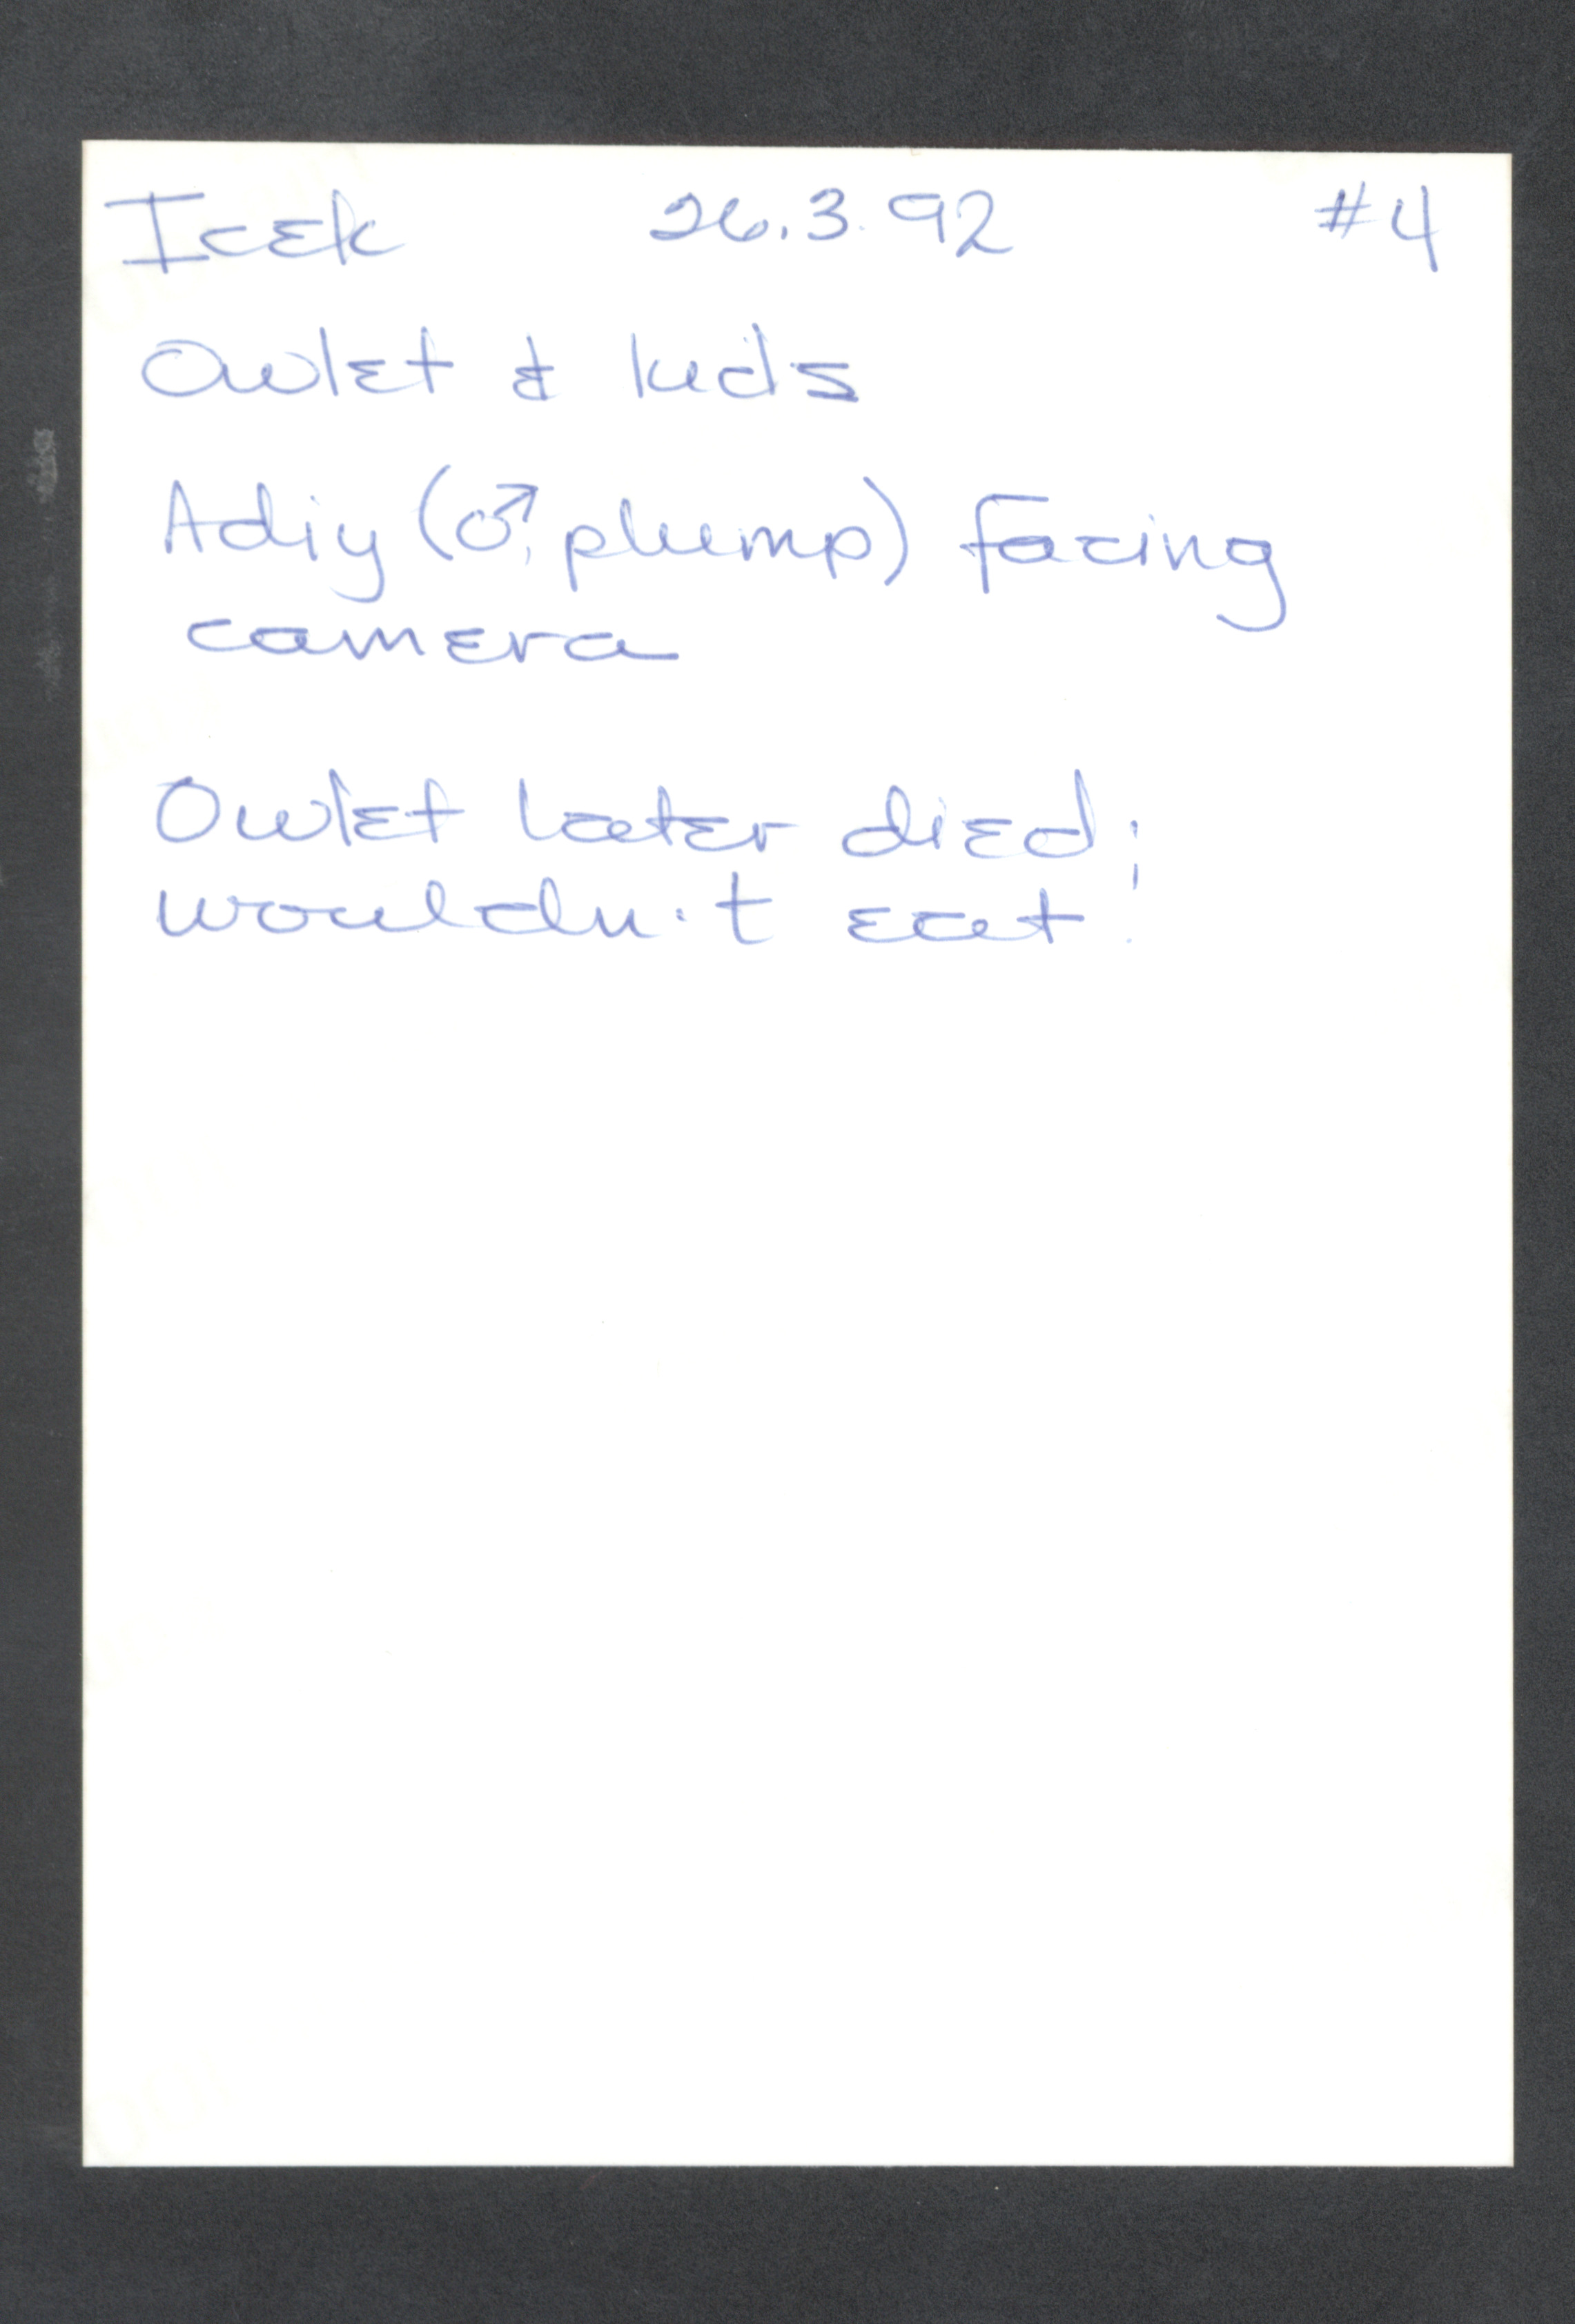 Icek 26.3.92 #4
Owlet & kids
Adiy (♂, plump) facing
camera
Owlet later died;
wouldn't eat!